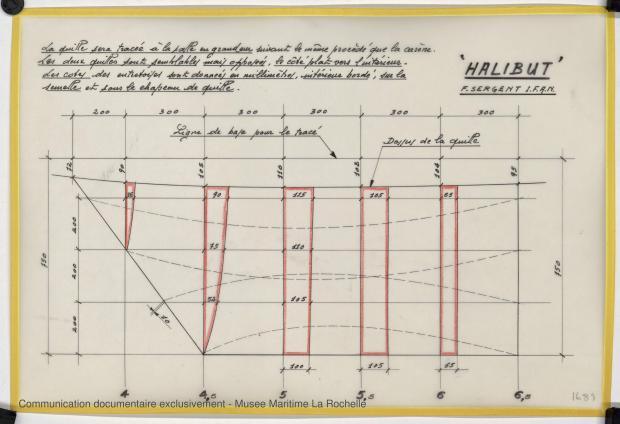 La quille sera tracée à la salle en grandeur suivant le même procédé que la carène.
Les deux quilles sont semblables mais opposées, le côté plat vers l'intérieur.
Les cotes des entretoises sont données en millimètres, intérieur bordé, sur la
semelle et sous le chapeau de quille.
'HALIBUT'
F. SERGENT I.F.A.N.
200 300 300 300 300 300
Ligne de base pour le tracé
Dessus de la quille
72 90 105 110 108 104 95
90 115 105
200 200 200
750 750
75 110
52 105
10
100 105 65
4 4,5 5 5,5 6 6,5
1683
Communication documentaire exclusivement - Musee Maritime La Rochelle